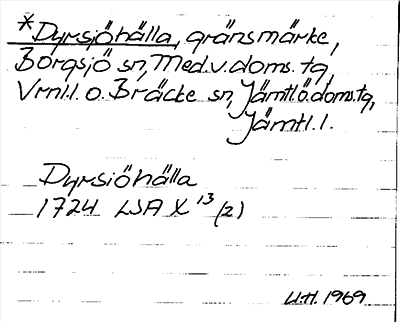 *Dyrsjöhälla, gränsmärke,
Borgsjö sn, Med.v.doms.tg,
Vrnl.l. o. Bräcke sn, Jämtl.ö.doms.tg,
Jämtl.l.
Dyrsiöhälla
1724 LSA X 13 (2)
U.H. 1969